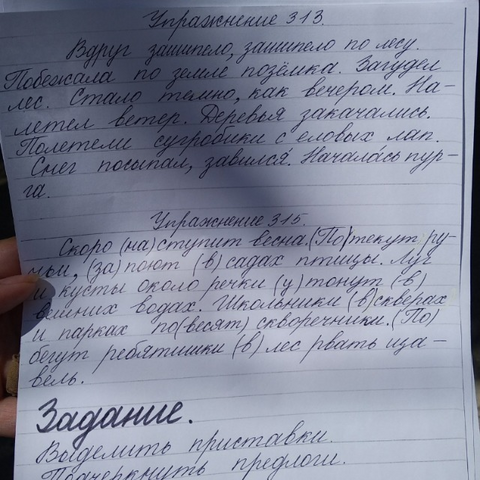 Упражнение 313.
Вдруг зашипело, зашипело по лесу.
Побежала по земле позёмка. Загудел
лес. Стало темно, как вечером. На-
летел ветер. Деревья закачались.
Полетели сугробики с еловых лап.
Снег посыпал, завился. Началась пур-
га.
Упражнение 315.
Скоро (на)ступит весна. (По)текут ру-
чьи, (за)поют (в) садах птицы. Луг
и кусты около речки (у)тонут (в)
вешних водах. Школьники (в) скверах
и парках по(весят) скворечники. (По)
бегут ребятишки (в) лес рвать ща-
вель.
Задание.
Выделить приставки.
Подчеркнуть предлоги.